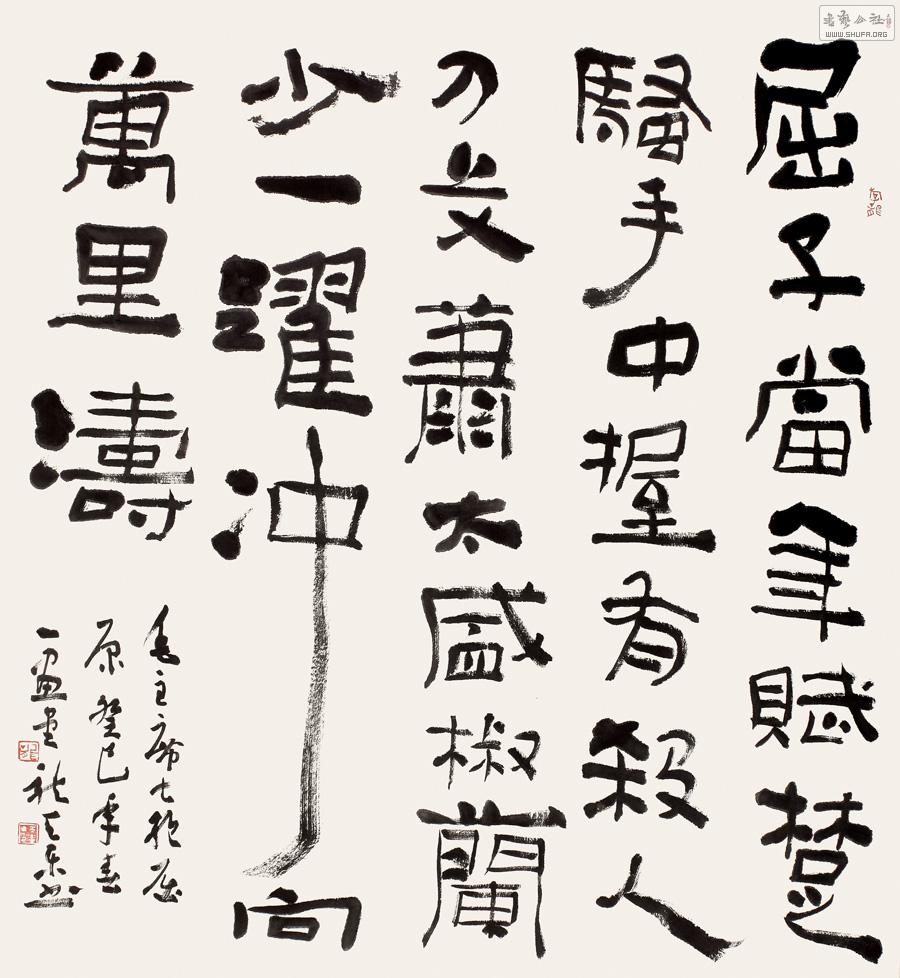 書藝公社
WWW.SHUFA.ORG
屈子當年賦楚
騷手中握有殺人
刀艾蕭太盛椒蘭
少一躍冲向
萬里濤
毛主席七絕屈
原癸巳季春
一畫堂